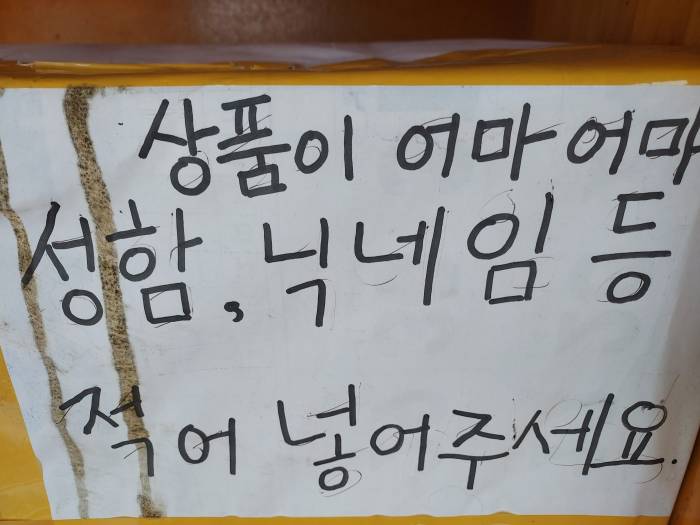 상품이 어마어마
성함, 닉네임 등
적어 넣어주세요.